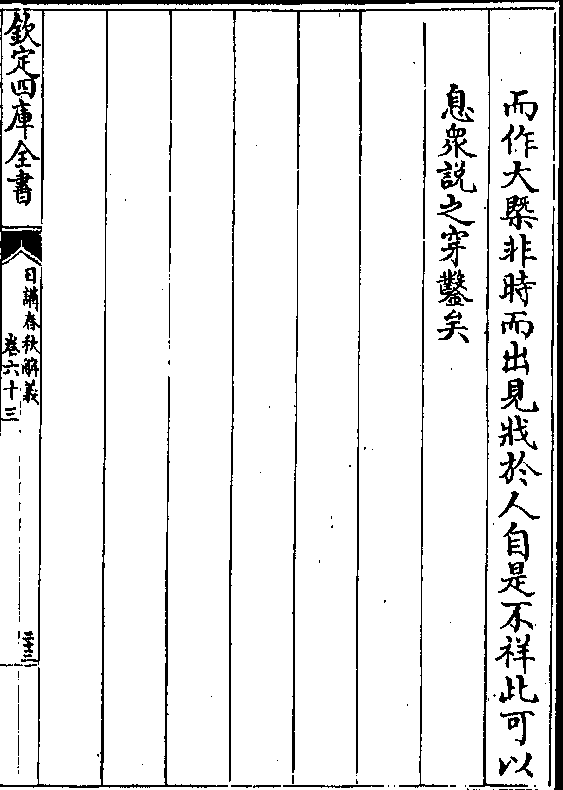 而作大槩非時而出見戕於人自是不祥此可以
息衆説之穿鑿矣
欽定四庫全書
日講春秋解義
卷六十三